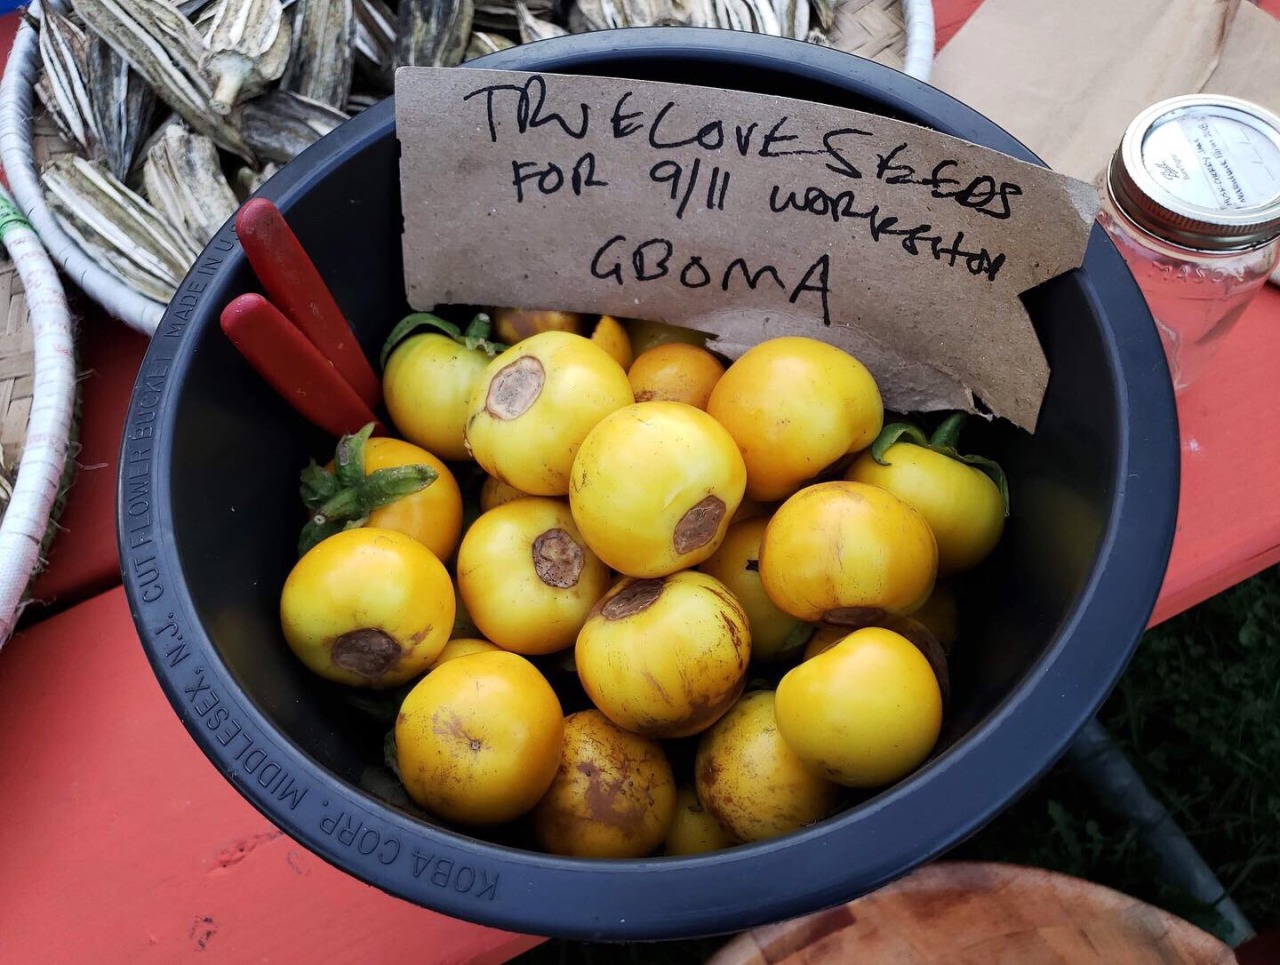 TRUELOVE SEEDS
FOR 9/11 WORKSHOP
GBOMA
KOBA CORP. MIDDLESEX, N.J. CUT FLOWER BUCKET MADE IN U.S
Ball